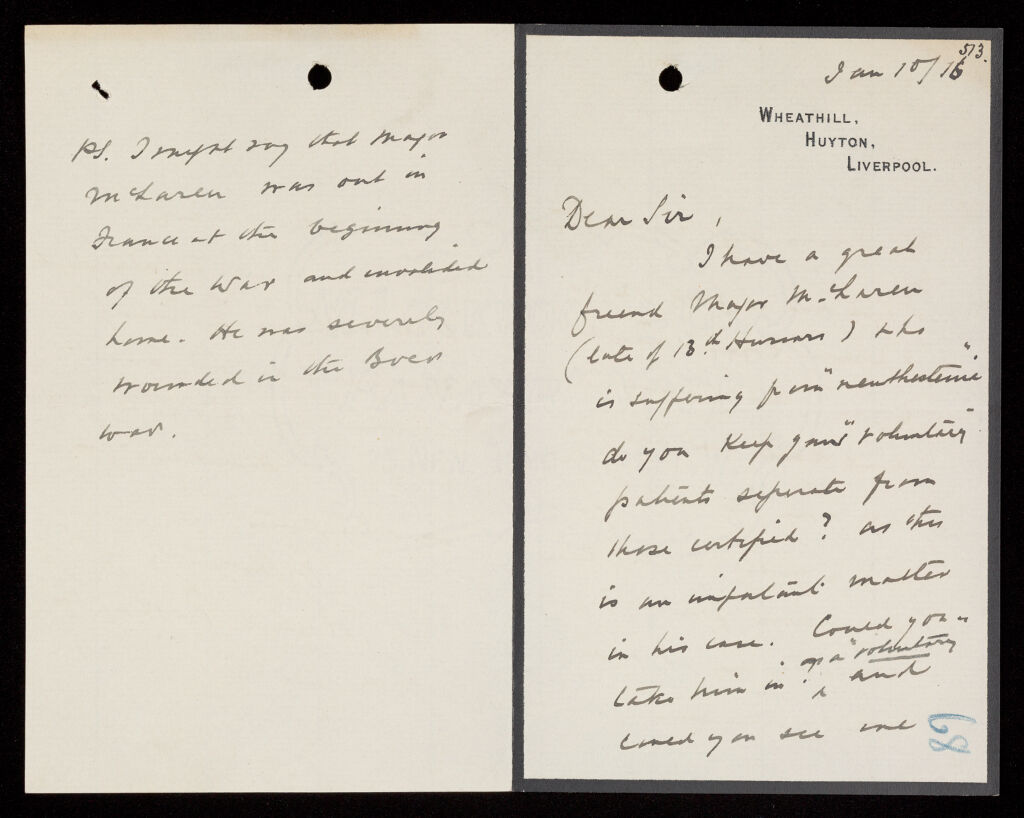 PS. I might say that Major
McLaren was out in
France at the beginning
of the War and invalided
home. He was severely
wounded in the Boer
war.
513.
Jan 10/16
WHEATHILL,
HUYTON,
LIVERPOOL.
Dear Sir,
I have a great
friend Major McLaren
(late of 13th Hussars) who
is suffering from "neurthestenie"
do you keep your "voluntary"
patients seperate from
those certified? as this
is an important matter
in his case. Could you
take him in as a "voluntary" and
could you see me
68